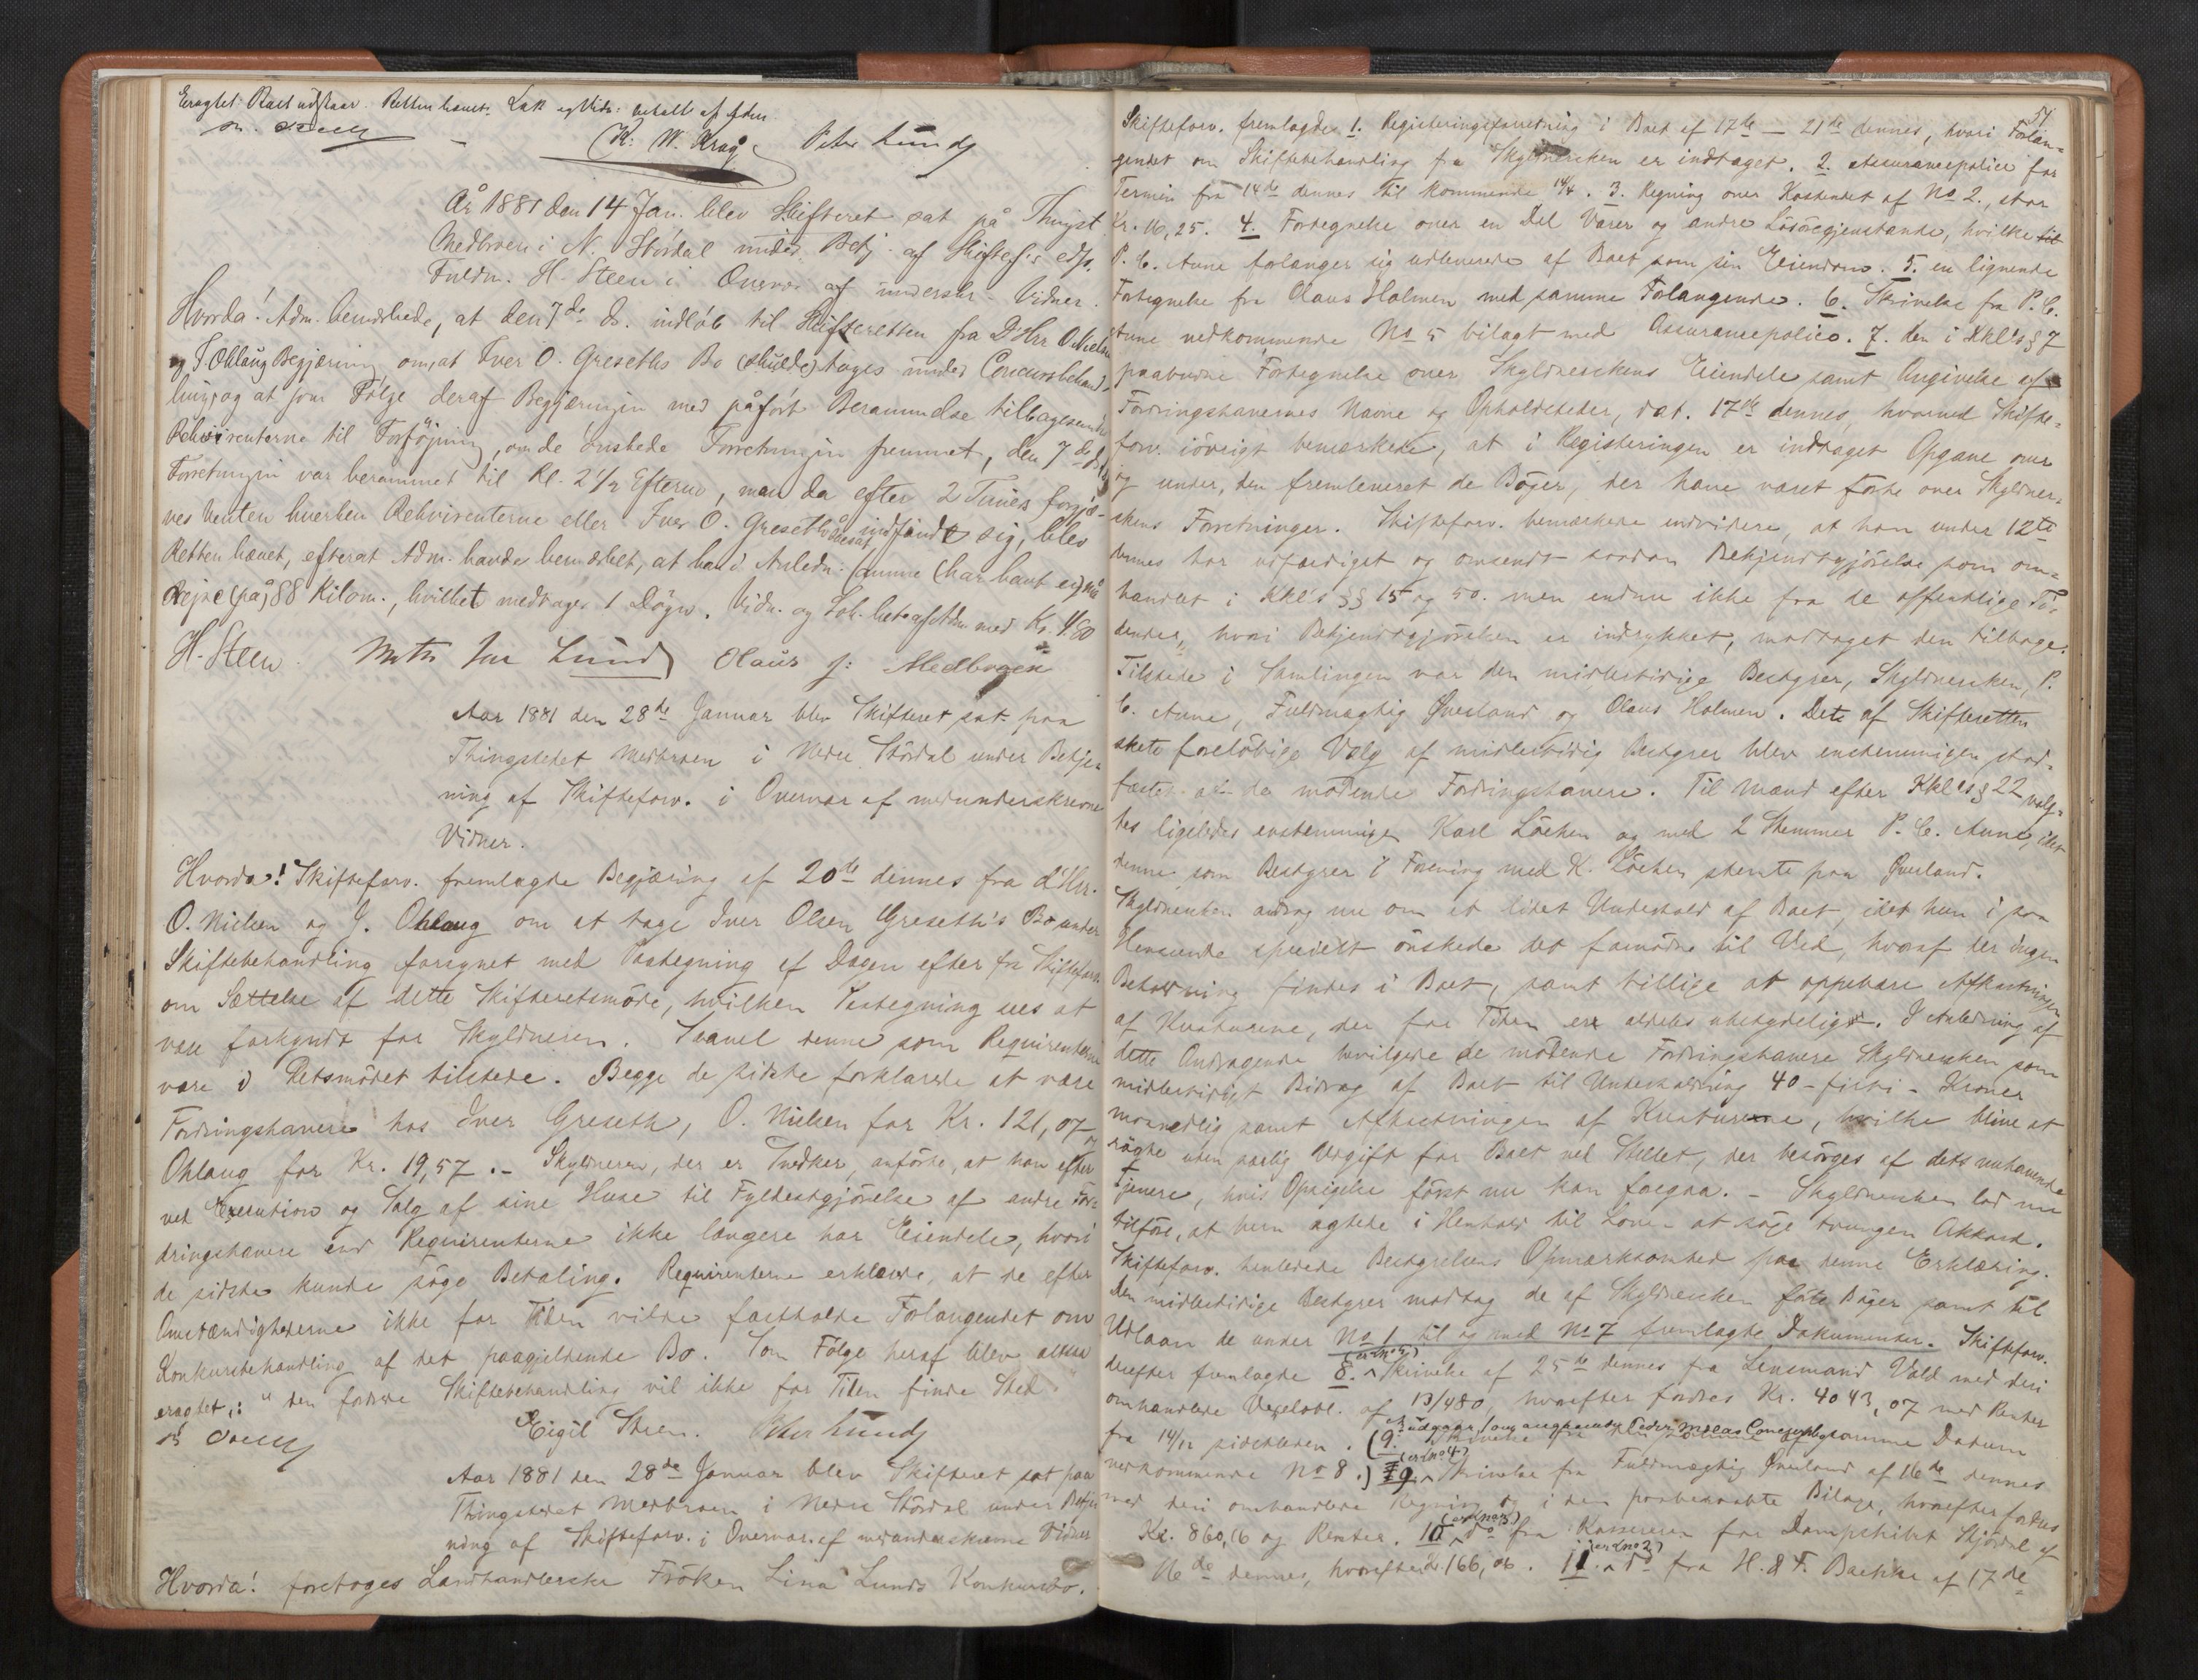 Eragtet: Boet udstaar. Retten hævet. Lak og Vidn. betalt af Adm.
K. W. Krag Peter Lund
År 1881 den 14 Jan. blev Skifteret sat på Thingst.
Medbroen i N. Stördal under Betj. af Skiftefs edsv.
Fuldm. H. Steen i Overvær af underskr. Vidner.
Hvorda! Adm. bemærkede, at den 7de ds. indlöb til Skifteretten fra D'Hrr O. Nielsen
og J. Öhlaug Begjæring om, at Iver O. Greseths Bo (skulde) tages under Concursbehand-
ling, og at som Fölge deraf Begjæringen med påfört Berammelse tilbagesendt
Rekvirenterne til Forföining, om de önskede Forretningen fremmet, den 7de ds.
Forretningen var berammet til Kl. 2 1/2 Efterm, men da efter 2 Timers forgjæ-
ves Venten hverken Rekvirenterne eller Iver O. Greseth indfandt sig, blev
Retten hævet, efterat Adm. havde bemærket, at han i Anledn: (har havt en)
Rejse (på) 88 Kilom., hvilket medtager 1 Dögn. Vidn. og Lok. bet. af Adm med Kr. 4.80
H. Steen. Lund Olaus J: Medbroen
Aar 1881 den 28de Januar blev Skifteret sat paa
Thingstedet Medbroen i Nedre Stördal under Betje-
ning af Skifteforv. i Overvær af medunderskrevne
Vidner.
Hvorda! Skifteforv. fremlagde Begjæring af 20de dennes fra d'Hrr.
O. Nielsen og J. Ohlaug om at tage Iver Olsen Greseth's Bo under
Skiftebehandling forsynet med Paategning af Dagen efter fra Skifteforv.
om Sættelse af dette Skifteretsmöde, hvilken Paategning sees at
være forkyndt for Skyldneren. Saavel denne som Requirenterne
vare i Retsmödet tilstede. Begge de sidste forklarede at være
Fordringshavere hos Iver Greseth, O. Nielsen for Kr. 121,07 og
Ohlaug for Kr. 19,57. - Skyldneren, der er Snedker, anförte, at han efter
ved Execution og Salg af sine Huse til Fyldestgjörelse af andre For-
dringshavere end Requirenterne ikke længere har Eiendele, hvori
de sidste kunde söge Betaling. Requirenterne erklærede, at de efter
Omstændighederne ikke for Tiden vilde fastholde Forlangendet om
Konkursbehandling af det paagjeldende Bo. Som Fölge heraf blev altsaa
eragtet: "den forlangte Skiftebehandling vil ikke for Tiden finde Sted."
Eigil Steen. Peter Lund
Aar 1881 den 28de Januar blev Skifteret sat paa
Thingstedet Medbroen i Nedre Stördal under Betje-
ning af Skifteforv. i Overvær af medunderskrevne Vidner
Hvorda! foretoges Landhandlerske Fröken Lina Lunds Konkursbo.
51
Skifteforv. fremlagde 1. Registeringsforretning i Boet af 17de - 21de dennes, hvori Forlan-
gendet om Skiftebehandling fra Skyldnersken er indtaget. 2. Assurancepolice for
Termin fra 14de dennes til kommende 14/4. 3. Regning over Kostendet af No 2., stor
Kr. 16,25. 4. Fortegnelse over en Del Varer og andre Lösöregjenstande, hvilke
P. C. Aune forlanger sig udleverede af Boet som sin Eiendom. 5. en lignende
Fortegnelse fra Olaus Holmen med samme Forlangende. 6. Skrivelse fra P. C.
Aune vedkommende No 5 bilagt med Assurancepolice. 7. den i Kkl's § 7
paabudne Fortegnelse over Skyldnerskens Eiendele samt Angivelse af
Fordringshavernes Navne og Opholdssteder, dat. 17de dennes, hvorved Skifte-
forv. iövrigt bemærkede, at i Registeringen er indtaget Opgave over
og under, den fremleveret de Böger, der have været förte over Skyldner-
skens Forretninger. Skifteforv. bemærkede endvidere, at han under 12te
dennes har udfærdiget og omsendt saadan Bekjendtgjörelse som om-
handlet i Kkl's §§ 15 og 50. men endnu ikke fra de offentlige Ti-
dender, hvori Bekjendtgjörelsen er indrykket, modtaget den tilbage.
Tilstede i Samlingen var den midlertidige Bestyrer, Skyldnersken, P.
C. Aune, Fuldmægtig Qverland og Olaus Holmen. Det af Skifteretten
skete forelöbige Valg af midlertidig Bestyrer blev enstemmigen stad-
fæstet af de mödende Fordringshavere. Til Mænd efter Kkl's § 22 valg-
tes ligeledes enstemmigen Karl Löchen og med 2 Stemmer P. C. Aune, idet
denne som Bestyrer i Forening med K. Löchen stemte paa Qverland.
Skyldnersken androg nu om et lidet Underhold af Boet, idet hun i saa
Henseende specielt önskede det fornödne til Ved, hvoraf der ingen
Beholdning findes i Boet, samt tillige at oppebære Afkastningen
af Kreaturene, der for Tiden er aldeles ubetydelig. I Anledning af
dette Andragende bevilgede de mödende Fordringshavere Skyldnersken som
midlertidigt Bidrag af Boet til Underholdning 40 - firti - Kroner
maanedlig samt Afkastningen af Kreaturene, hvilke blive at
rögte uden særlig Udgift for Boet ved Stellet, der besörges af dets nuhavende
Tjenere, hvis Opsigelse först nu kan foregaa. - Skyldnersken lod nu
tilföre, at hun agtede i Henhold til Loven at söge tvungen Akkord.
Skifteforv. henledede Bestyrelsens Opmærksomhed paa denne Erklæring.
Den midlertidige Bestyrer modtog de af Skyldnersken förte Böger samt til
Udlaan de under No 1 til og med No 7 fremlagde Dokumenter. Skifteforv.
derefter fremlagde 8. Skrivelse af 25de dennes fra Lensmand Vold med deri
omhandlede Vexelobl. af 13/4 80, hvorefter fordres Kr. 4043,07 med Renter
fra 14/12 sidstleden. (9. samme Datum
vedkommende No 8.) 9. (er No 4) Skrivelse fra Fuldmægtig Qverland af 16de dennes
med deri omhandlede Regning og i den paaberaabte Bilage, hvorefter fordres
Kr. 860,16 og Renter. 10. do fra Kassereren for Dampskibet Stjördal af
16de dennes, hvorefter Kr. 166,06. 11. (er No 2) do fra H. & F. Bachke af 17de